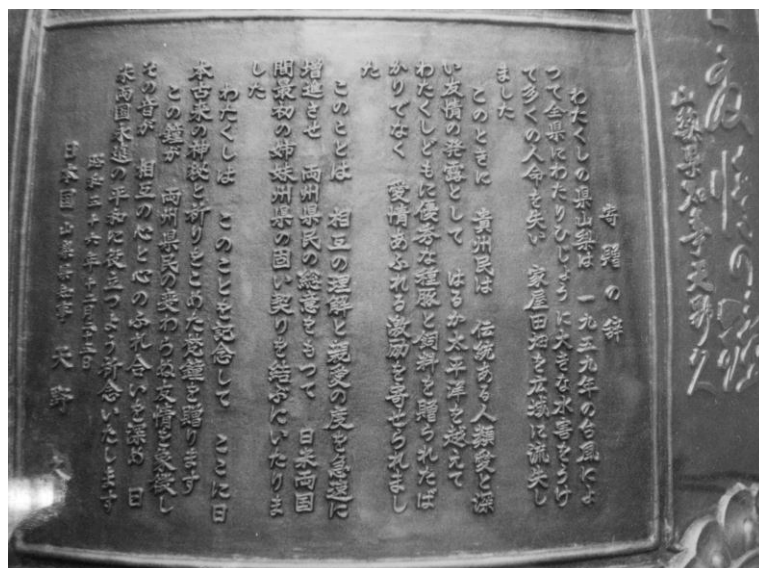 の鐘
山梨県知事天野久
寄贈の辞
わたくしの県山梨は 一九五九年の台風によ
つて全県にわたりひじょうに大きな水害をうけ
て多くの人命を失い 家屋田地を広域に流失し
ました
このときに 貴州民は 伝統ある人類愛と深
い友情の発露として はるか太平洋を越えて
わたくしどもに優秀な種豚と飼料を贈られたば
かりでなく 愛情あふれる激励を寄せられまし
た
このことは 相互の理解と親愛の度を急速に
増進させ 両州県民の総意をもつて 日米両国
間最初の姉妹州県の固い契りを結ぶにいたりま
した
わたくしは このことを記念して ここに日
本古来の神秘と祈りをこめた梵鐘を贈ります
この鐘が 両州県民の変わらぬ友情を象徴し
その音が 相互の心と心のふれ合いを深め 日
米両国永遠の平和に役立つよう祈念いたします
昭和三十六年十二月
日本国山梨県知事 天野 久